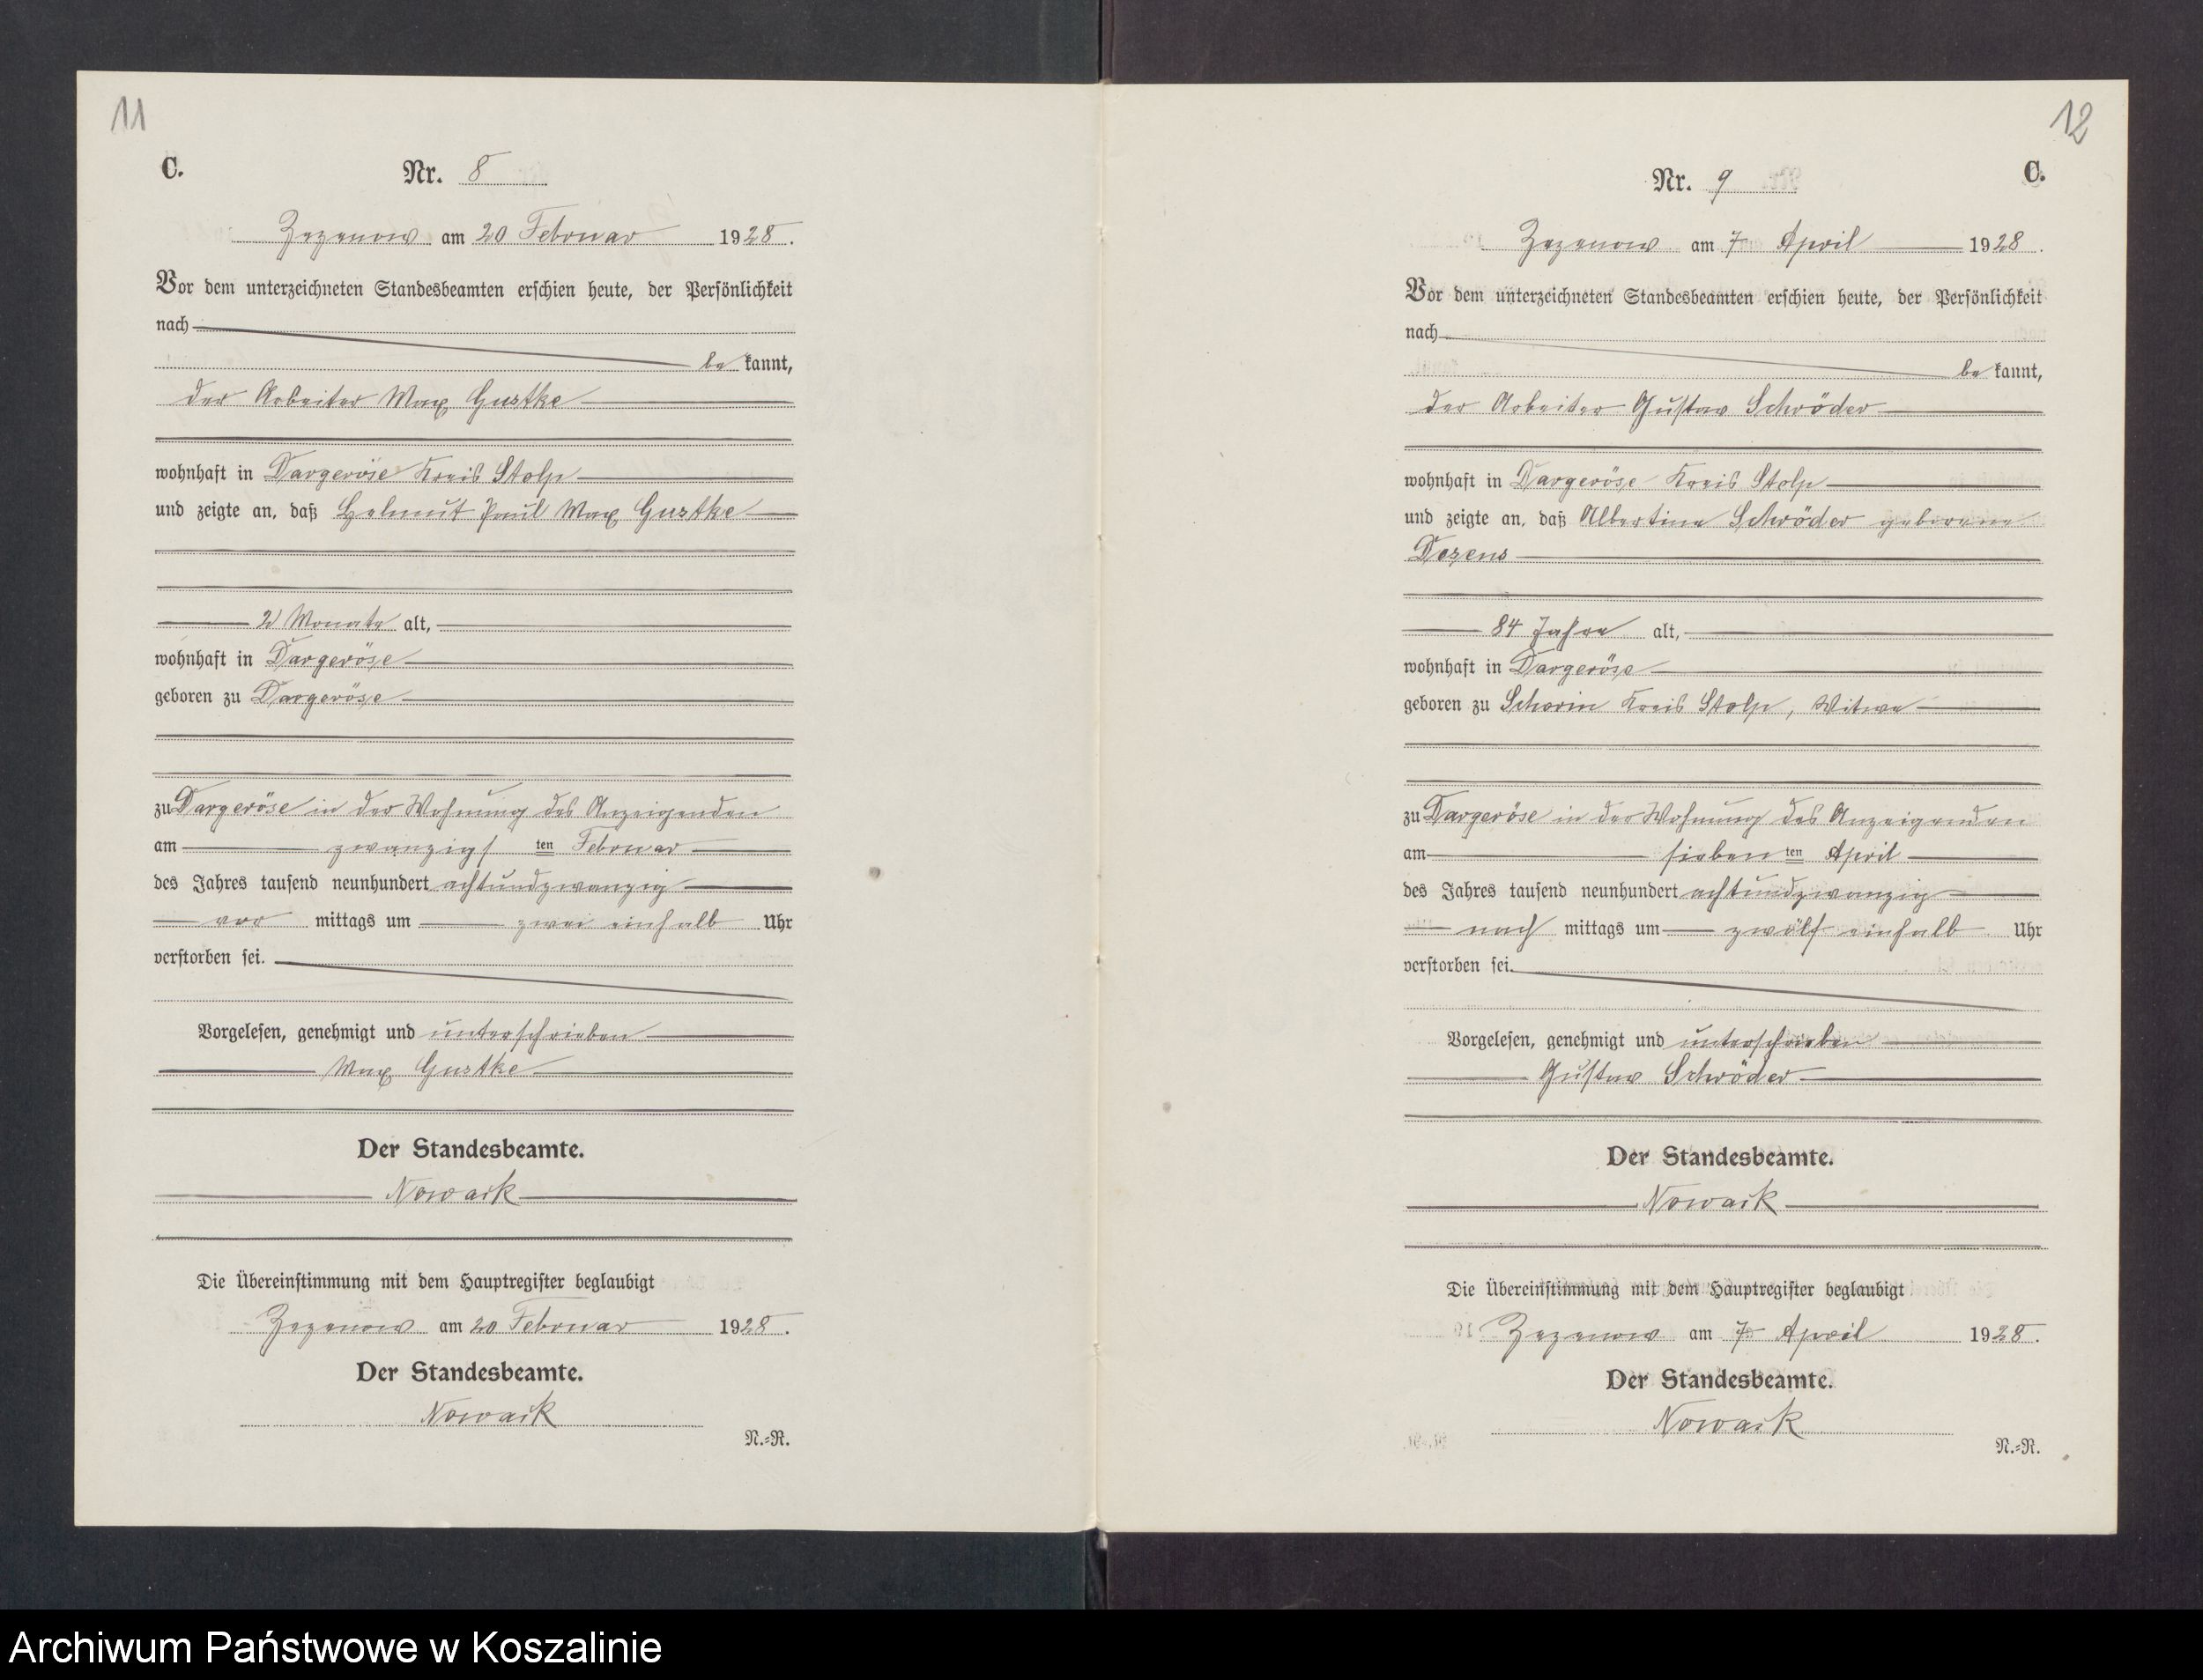 11
C.
Nr. 8
Zezenow am 20 Februar 1928.
Vor dem unterzeichneten Standesbeamten erschien heute, der Persönlichkeit
nach
be kannt,
der Arbeiter Max Gustke
wohnhaft in Dargeröse Kreis Stolp
und zeigte an, daß Helmut Paul Max Gustke
2 Monate alt,
wohnhaft in Dargeröse
geboren zu Dargeröse
zu Dargeröse in der Wohnung des Anzeigenden
am zwanzigs ten Februar
des Jahres tausend neunhundert achtundzwanzig
vor mittags um zwei einhalb Uhr
verstorben sei.
Vorgelesen, genehmigt und unterschrieben
Max Gustke
Der Standesbeamte.
Nowack
Die Übereinstimmung mit dem Hauptregister beglaubigt
Zezenow am 20 Februar 1928.
Der Standesbeamte.
Nowack
N.=R.
12
C.
Nr. 9
Zezenow am 7 April 1928.
Vor dem unterzeichneten Standesbeamten erschien heute, der Persönlichkeit
nach
be kannt,
der Arbeiter Gustav Schröder
wohnhaft in Dargeröse Kreis Stolp
und zeigte an, daß Albertine Schröder geborene
84 Jahre alt,
wohnhaft in Dargeröse
geboren zu Schorin Kreis Stolp, Witwe
zu Dargeröse in der Wohnung des Anzeigenden
am sieben ten April
des Jahres tausend neunhundert achtundzwanzig
nach mittags um zwölf einhalb Uhr
verstorben sei.
Vorgelesen, genehmigt und unterschrieben
Gustav Schröder
Der Standesbeamte.
Nowack
Die Übereinstimmung mit dem Hauptregister beglaubigt
Zezenow am 7 April 1928.
Der Standesbeamte.
Nowack
N.=R.
Archiwum Państwowe w Koszalinie